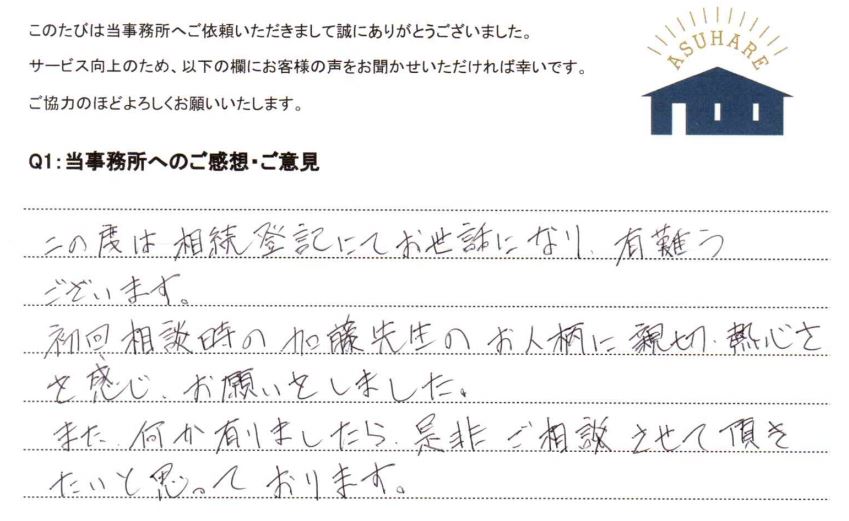 このたびは当事務所へご依頼いただきまして誠にありがとうございました。
サービス向上のため、以下の欄にお客様の声をお聞かせいただければ幸いです。
ご協力のほどよろしくお願いいたします。
ASUHARE
Q1:当事務所へのご感想・ご意見
この度は相続登記にてお世話になり、有難う
ございます。
初回相談時の加藤先生のお人柄に親切、熱心さ
を感じ、お願いをしました。
また、何か有りましたら、是非ご相談させて頂き
たいと思っております。